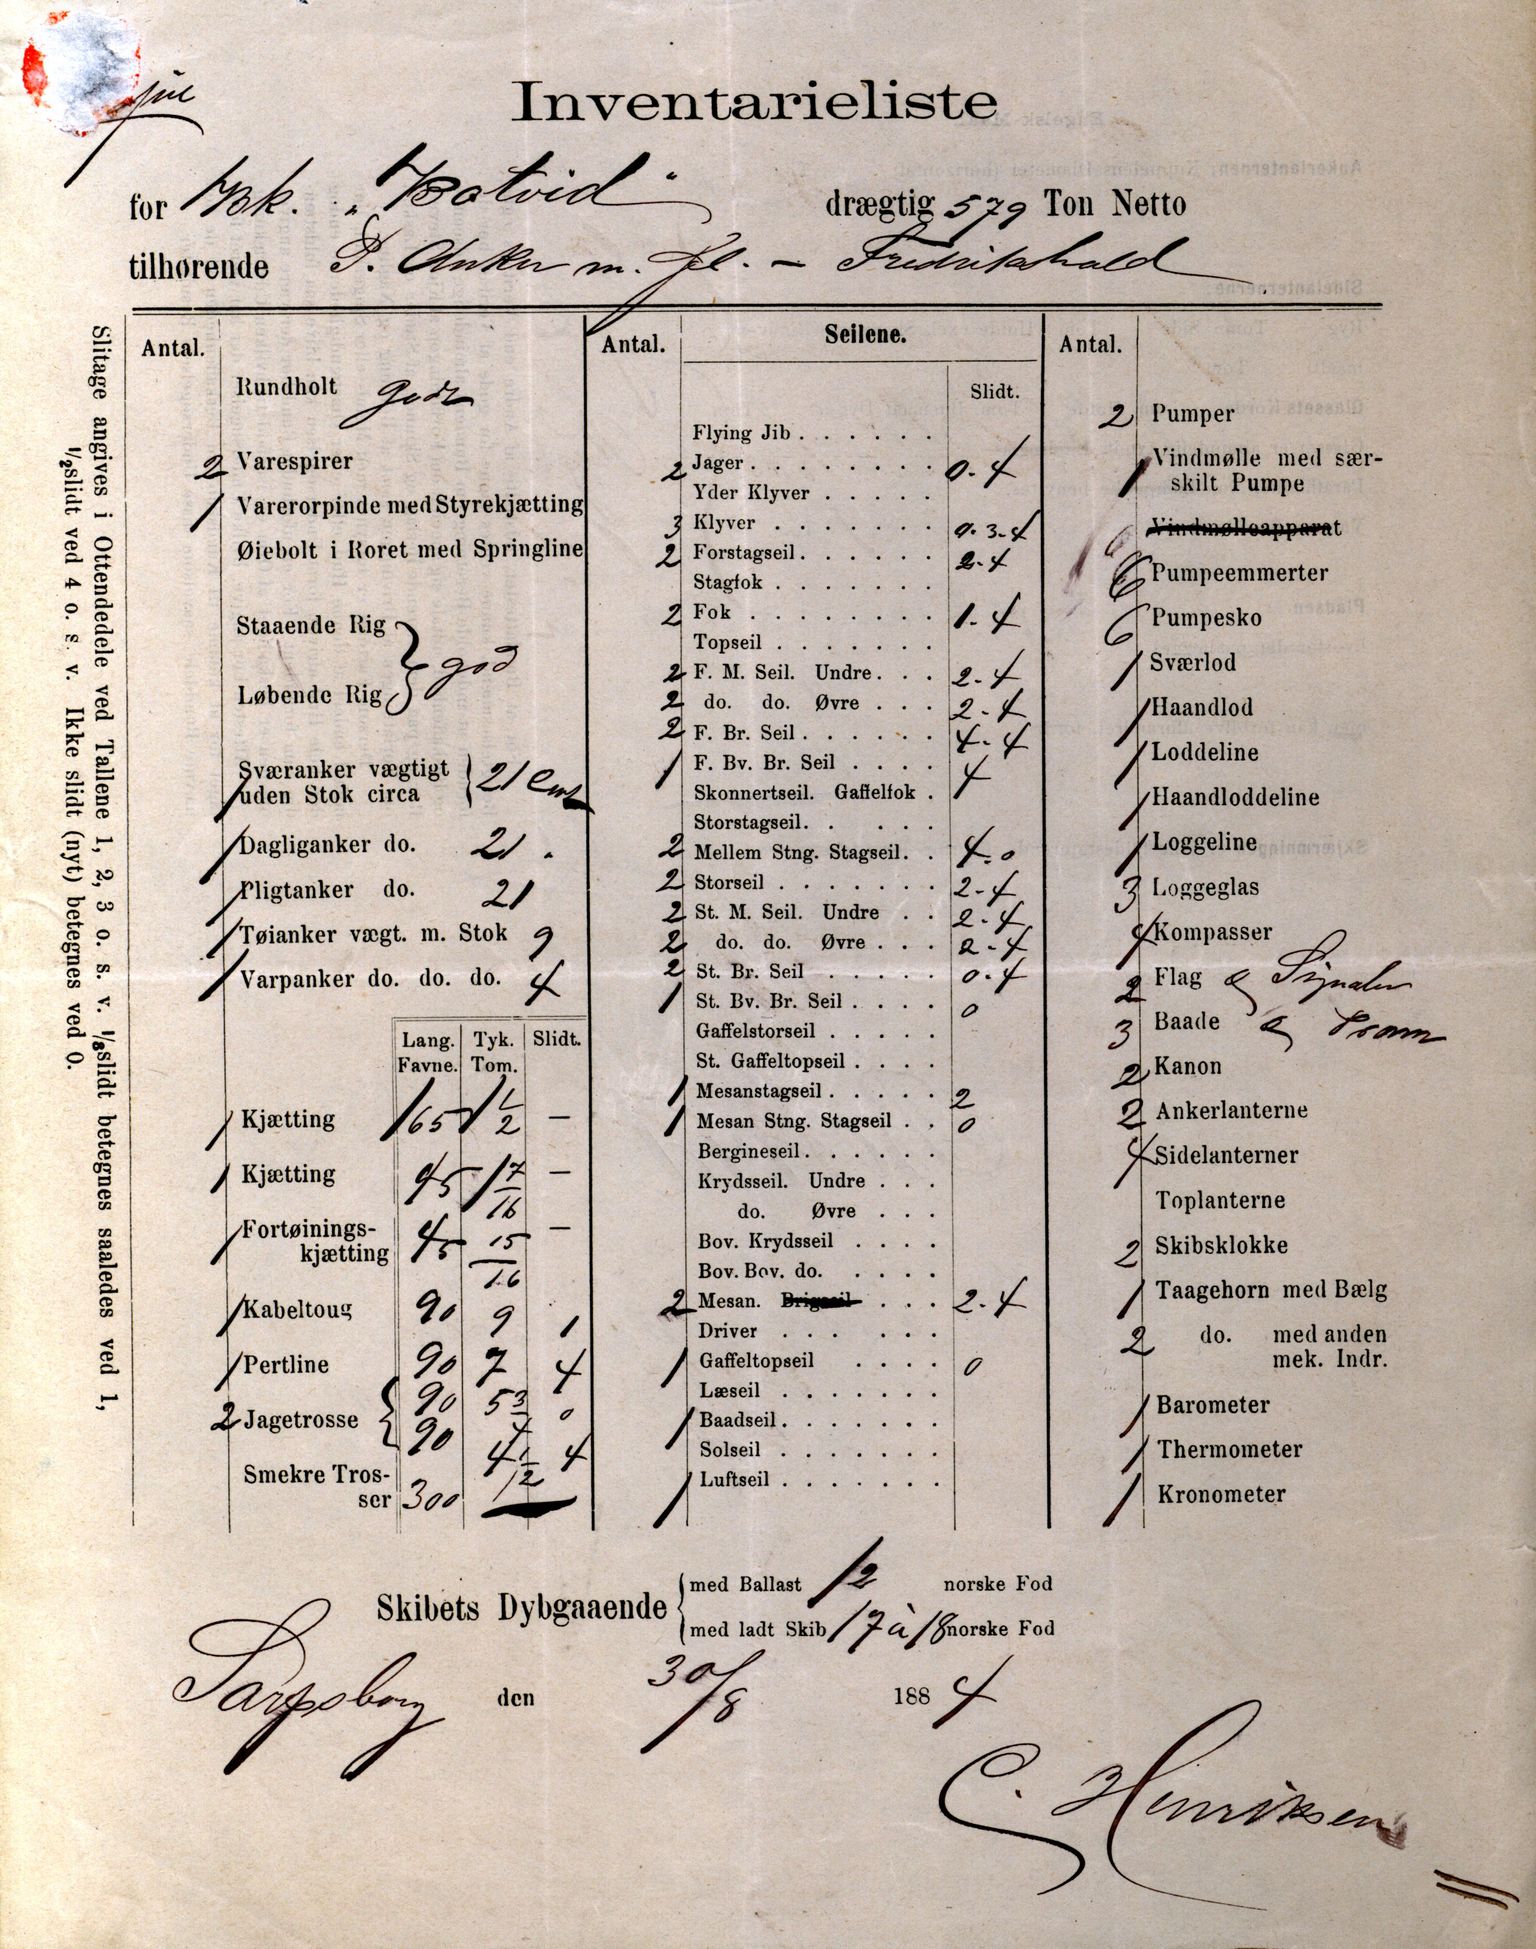 Inventarieliste
for Bk. „Botvid" drægtig 579 Ton Netto
tilhørende P. Anker m. fl. – Fredrikshald
Slitage angives i Ottendedele ved Tallene 1, 2, 3 o. s. v. ⅛ slidt betegnes saaledes ved 1,
½ slidt ved 4 o. s. v. Ikke slidt (nyt) betegnes ved 0.
Antal.
Rundholt godt
2 Varespirer
1 Varerorpinde med Styrekjætting
Øiebolt i Roret med Springline
Staaende Rig } god
Løbende Rig
Sværanker vægtigt
1 uden Stok circa { 21 Cwt
1 Dagliganker do. 21 "
1 Pligtanker do. 21
1 Tøianker vægt. m. Stok 9
1 Varpanker do. do. do. 4
Lang. Tyk. Slidt.
Favne. Tom.
1 Kjætting 165 1 1/2 —
1 Kjætting 45 1 7/16 —
1 Fortøinings-
kjætting 45 15/16 —
1 Kabeltoug 90 9 1
1 Pertline 90 7 4
2 Jagetrosse { 90 5 3/4 0
90 4 1/2 4
Smekre Tros-
ser 300
Antal. Seilene.
Slidt.
Flying Jib . . . . . .
2 Jager . . . . . . . . 0-4
Yder Klyver . . . . .
3 Klyver . . . . . . . 0-3-4
2 Forstagseil . . . . . . 2-4
Stagfok . . . . . . .
2 Fok . . . . . . . . 1-4
Topseil . . . . . . .
2 F. M. Seil. Undre . . . 2-4
2 do. do. Øvre . . . 2-4
2 F. Br. Seil . . . . . . 4-4
1 F. Bv. Br. Seil . . . . 4
Skonnertseil. Gaffelfok .
Storstagseil . . . . .
2 Mellem Stng. Stagseil . . 4-0
2 Storseil . . . . . . . 2-4
2 St. M. Seil. Undre . . 2-4
2 do. do. Øvre . . . 2-4
2 St. Br. Seil . . . . . 0-4
1 St. Bv. Br. Seil . . . . 0
Gaffelstorseil . . . . .
St. Gaffeltopseil . . . .
1 Mesanstagseil . . . . . 2
1 Mesan Stng. Stagseil . . 0
Bergineseil . . . . . .
Krydsseil. Undre . . .
do. Øvre . . .
Bov. Krydsseil . . . .
Bov. Bov. do. . . . .
2 Mesan. Brigseil . . . 2-4
Driver . . . . . .
1 Gaffeltopseil . . . . 0
Læseil . . . . . . .
1 Baadseil . . . . . . .
Solseil . . . . . . .
1 Luftseil . . . . . . .
Antal.
2 Pumper
1 Vindmølle med sær-
skilt Pumpe
Vindmølleapparat
6 Pumpeemmerter
6 Pumpesko
1 Sværlod
1 Haandlod
1 Loddeline
1 Haandloddeline
1 Loggeline
3 Loggeglas
4 Kompasser
2 Flag & Signaler
3 Baade & Pram
2 Kanon
2 Ankerlanterne
4 Sidelanterner
Toplanterne
2 Skibsklokke
1 Taagehorn med Bælg
2 do. med anden
mek. Indr.
1 Barometer
1 Thermometer
1 Kronometer
Skibets Dybgaaende { med Ballast 12 norske Fod
med ladt Skib 17 à 18 norske Fod
Sarpsborg den 30/8 1884
C. Henriksen